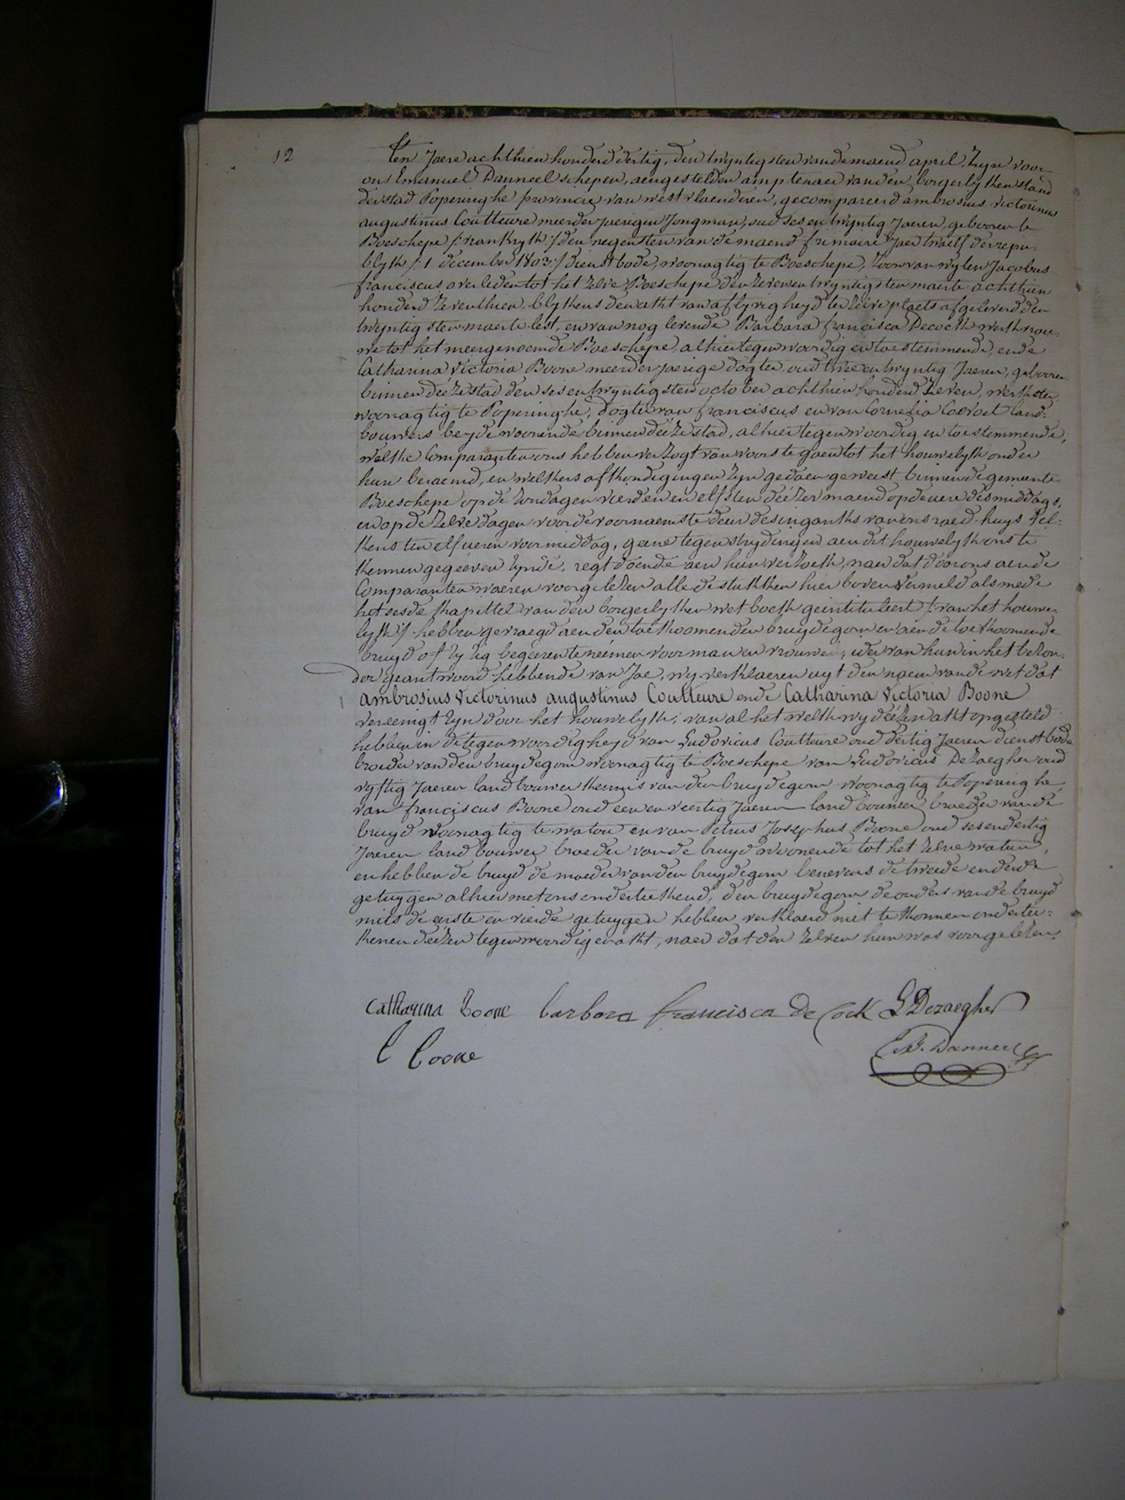 12
Ten Jaere achthien honderd dertig, den twyntigsten vande maend april, Zyn voor
ons Emanuel Danneel schepen, aengestelden amptenaer van den borgerlyken stand
der stad Poperinghe provincie van westvlaenderen, gecompareerd ambrosius victorinus
augustinus Coutteure meerderjaerigen Jongman, oud sesentwyntig Jaeren, geboren te
Boeschepe /:vrankryk:/ den negensten van de maend frimaire Jaer twaelf der repu-
blyk /: 1 december 1803:/ dienstbode, woonagtig te Boeschepe, Zoon van wylen Jacobus
franciscus overleden tot het zelve Boeschepe den zevenentwyntigsten maerte achthien
honderd zeventhien blykens de akt van aflyvigheyd ter zelve plaets afgeleverd den
twyntigsten maerte lest, en van nog levende Barbara francisca Decock werkvrou-
we tot het meergenoemde Boeschepe, alhier tegenwoordig en toestemmende, ende
Catharina victoria Boone meerderjaerige dogter, oud tweeentwyntig Jaeren, geboren
binnen deeze stad den sesentwyntigsten october achthien honderd zeven, werkster
woonagtig te Poperinghe, dogter van franciscus en van Cornelia Coevoet land-
bouwers beyde woonende binnen deeze stad, alhier tegenwoordig en toestemmende,
welke Comparanten ons hebben verzogt van voorts te gaen tot het houwelyk onder
hun beraemd, en welkers afkondigingen zyn gedaen geweest binnen de gemeente
Boeschepe op de zondagen vierden en elfsten deezer maend op de uere des middags,
en op de zelve dagen voor de voornaemste deur des inganks van ons raed-huys tel-
kens ten elf ueren voormiddag, geene tegenstrydingen aen dit houwelyk ons te
kennen gegeeven zynde, regt doende aen hun verzoek, naer dat door ons aen de
Comparanten waeren voorgelezen alle de stukken hier boven vermeld als mede
het sesde kapittel van den borgerlyken wetboek geintituleert /: van het houwe-
lyk :/ hebben gevraegd aen den toekoomenden bruydegom en aen de toekoomende
bruyd of zy zig begeeren te neemen voor man en vrouwe; ider van hun in het bezon-
der geantwoord hebbende van Jae, wy verklaeren uyt den naem vande wet dat
ambrosius victorinus augustinus Coutteure ende Catharina victoria Boone
vereenigt zyn door het houwelyk; van al het welk wy deezen akt opgesteld
hebben in de tegenwoordigheyd van Ludovicus Coutteure oud dertig Jaeren dienstbode
broeder van den bruydegom woonagtig te Boeschepe van Ludovicus Dezaegher oud
vyftig Jaeren landbouwer kennis van den bruydegom woonagtig te Poperinghe
van franciscus Boone oud eenenveertig Jaeren landbouwer broeder van de
bruyd woonagtig te watou en van Petrus Josephus Boone oud sesendertig
Jaeren landbouwer broeder van de bruyd woonende tot het zelve watou,
en hebben de bruyd de moeder van den bruydegom benevens de tweede en derde
getuygen alhier met ons onderteekend, den bruydegom de ouders van de bruyd
mits de eerste en vierde getuygen hebben verklaerd niet te konnen onderteek-
kenen deezen tegenwoordigen akt, naer dat den zelven hun was voorgelezen.
Catharina Boone barbara francisca de Cock L Dezaegher
Boone Danneel